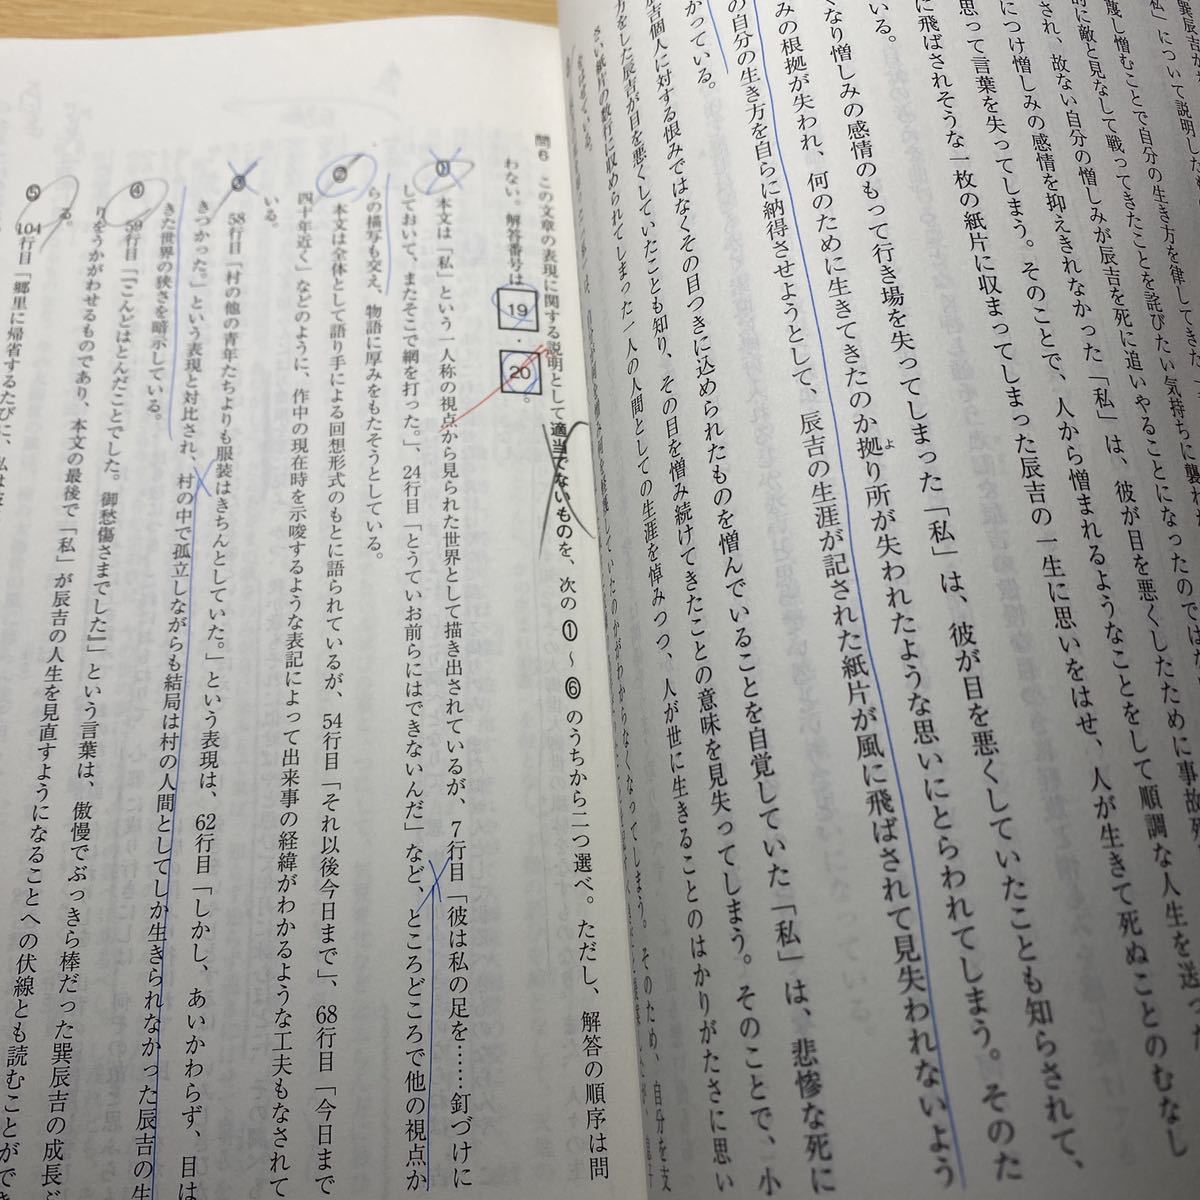 巽辰吉が
「私」について説明した
蔑し憎むことで自分の生き方を律して
的に敵と見なして戦ってきたことを詫びたい気持ちに襲われ
され、故ない自分の憎しみが辰吉を死に追いやることになったのでは
につけ憎しみの感情を抑えきれなかった「私」は、彼が目を悪くしたために事故死
思って言葉を失ってしまう。そのことで、人から憎まれるようなことをして順調な人生を送っ
に飛ばされそうな一枚の紙片に収まってしまった辰吉の一生に思いをはせ、人が生きて死ぬことのむなし
いる。
くなり憎しみの感情のもって行き場を失ってしまった「私」は、彼が目を悪くしていたことも知らされて、
みの根拠が失われ、何のために生きてきたのか拠り所が失われたような思いにとらわれてしまう。そのた
の自分の生き方を自らに納得させようとして、辰吉の生涯が記された紙片が風に飛ばされて見失われないよう
かっている。
吉個人に対する恨みではなくその目つきに込められたものを憎んでいることを自覚していた「私」は、悲惨な死に
方をした辰吉が目を悪くしていたことも知り、その目を憎み続けてきたことの意味を見失ってしまう。そのことで、小
さい紙片の数行に収められてしまった一人の人間としての生涯を悼みつつ、人が世に生きることのはかりがたさに思い
をはせている。
問6 この文章の表現に関する説明として適当でないものを、次の①～⑥のうちから二つ選べ。ただし、解答の順序は問
わない。解答番号は 19 ・ 20 。
① 本文は「私」という一人称の視点から見られた世界として描き出されているが、7行目「彼は私の足を……釘づけに
しておいて、またそこで網を打った。」、24行目「とうていお前らにはできないんだ」など、ところどころで他の視点か
らの描写も交え、物語に厚みをもたそうとしている。
② 本文は全体として語り手による回想形式のもとに語られているが、54行目「それ以後今日まで」、68行目「今日まで
四十年近く」などのように、作中の現在時を示唆するような表記によって出来事の経緯がわかるような工夫もなされて
いる。
③ 58行目「村の他の青年たちよりも服装はきちんとしていた。」という表現は、62行目「しかし、あいかわらず、目は
きつかった。」という表現と対比され、村の中で孤立しながらも結局は村の人間としてしか生きられなかった辰吉の生
きた世界の狭さを暗示している。
④ 59行目「『こんどはとんだことでした。御愁傷さまでした』」という言葉は、傲慢でぶっきら棒だった巽辰吉の成長ぶ
りをうかがわせるものであり、本文の最後で「私」が辰吉の人生を見直すようになることへの伏線とも読むことができ
る。
⑤ 104行目「郷里に帰省するたびに、私は